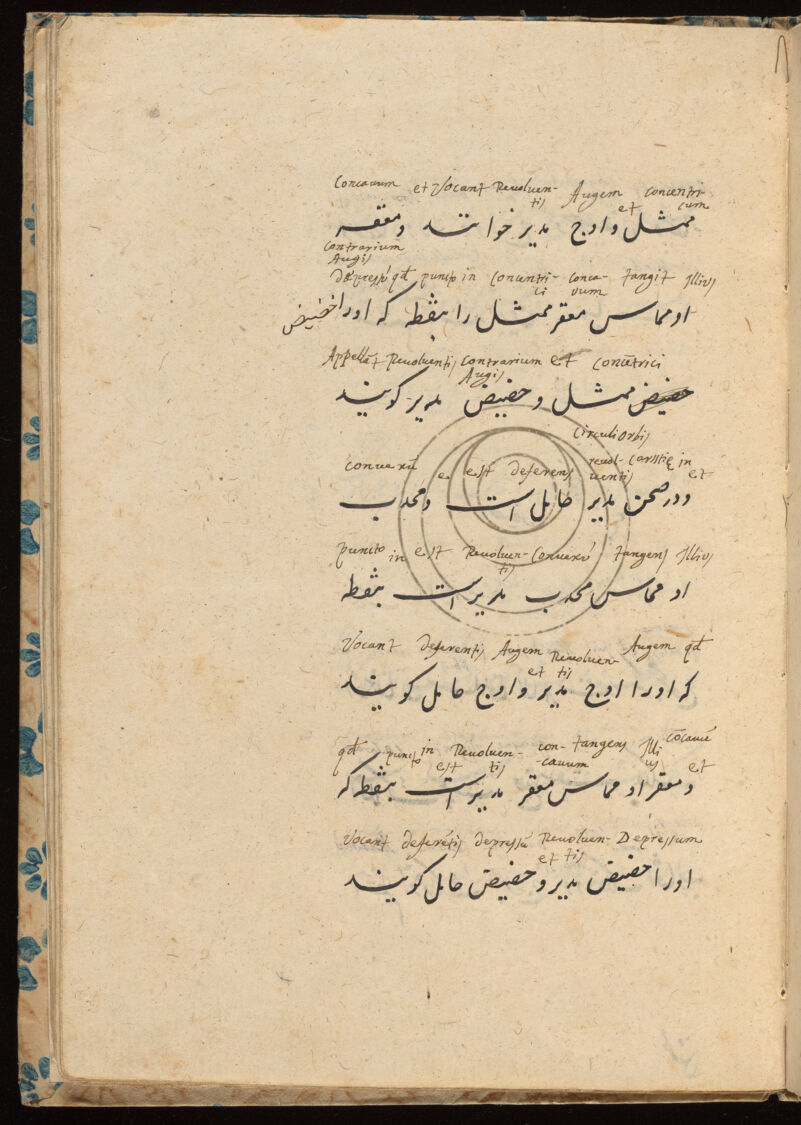 Concauum et Vocant Reuoluen-tis Augem et concentri-cum
ممثل و اوج مدیر خوانند و مقعر
contrarium Augis
depressũ qd puncto in concentri-ci conca-uum tangit Illius
او مماس مقعر ممثل را بنقطه که او را حضیض
Appellãt Reuoluentis contrarium Augis et concẽtrici
حضیض ممثل و حضیض مدیر کویند
circuli orbis
conuexũ e est deferens reuol-uentis in et
و در صحن مدیر حامل است و محدب
puncto in est Reuoluen-tis Conuexũ tangens Illius
او مماس محدب مدیر است بنقطه
Vocant deferentis Augem et Reuoluen-tis Augem qd
که او را اوج مدیر و اوج حامل کویند
qd puncto in est Reuoluen-tis con-cauum tangens Illi us cõcauũ et
و مقعر او مماس مقعر مدیر است بنقطه که
Vocant deferẽtis depressũ et Reuoluen-tis Depressum
او را حضیض مدیر و حضیض حامل کویند